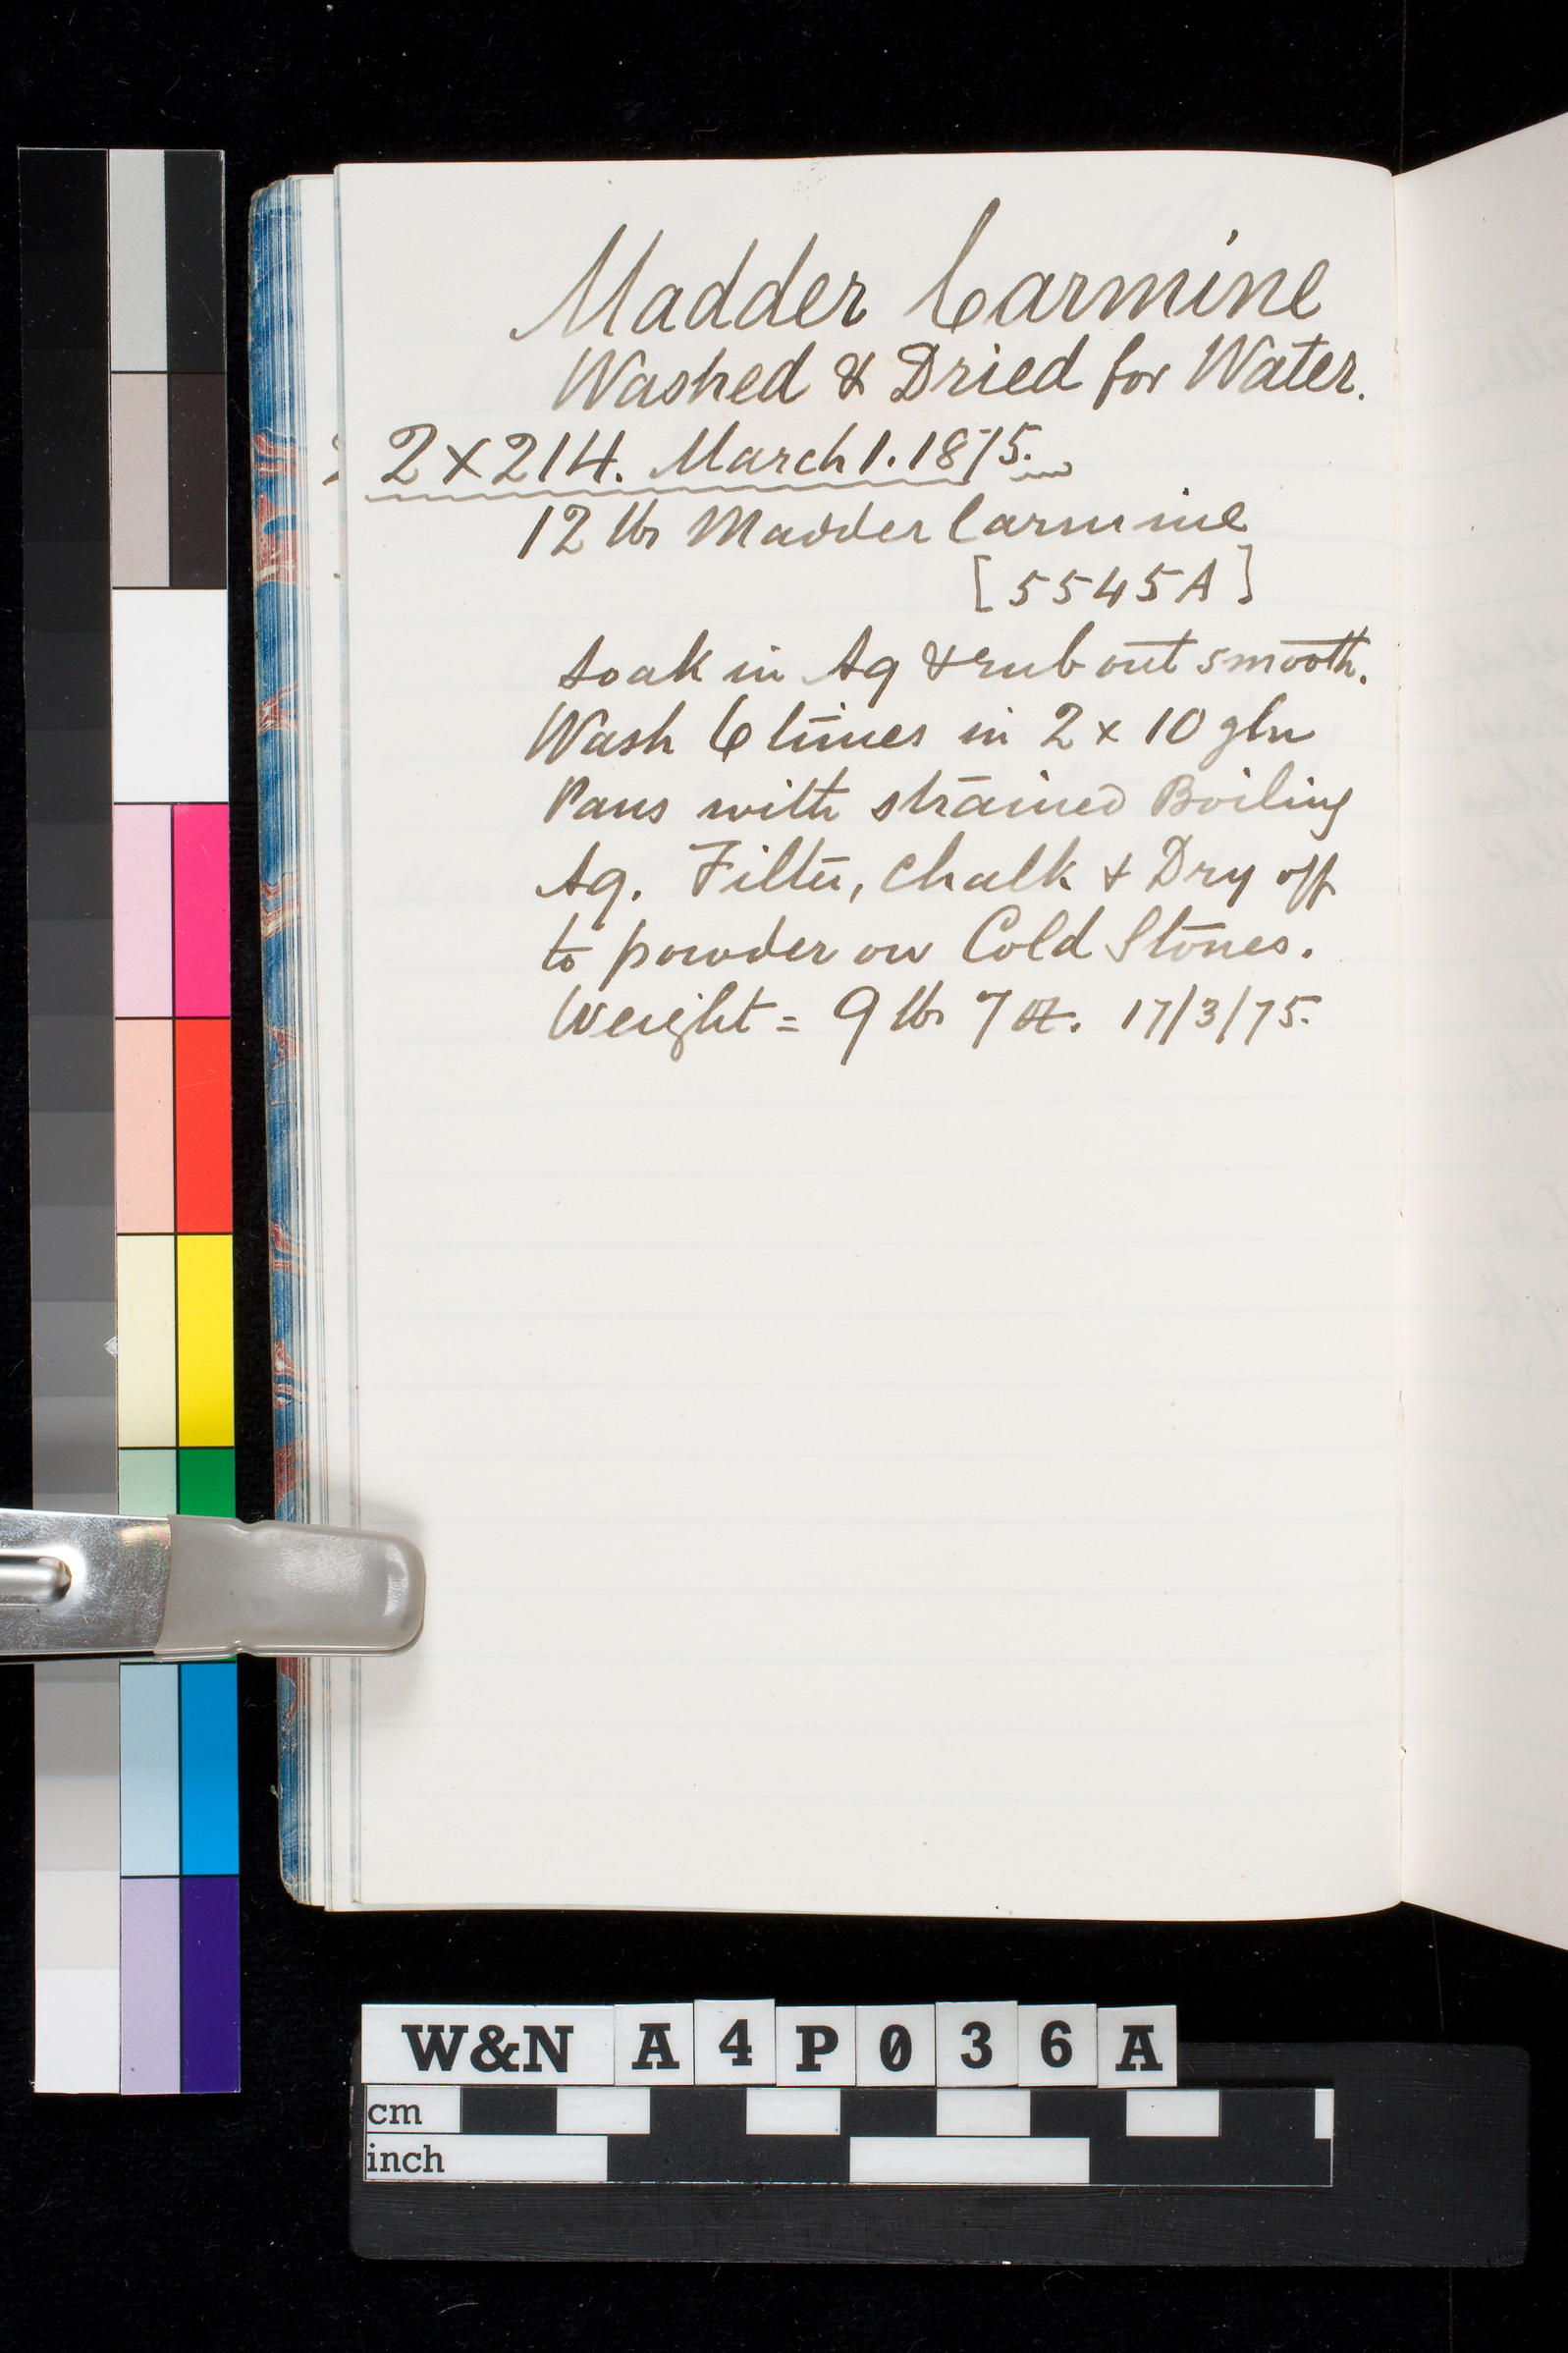 Madder Carmine
Washed & Dried for Water.
2×214. March 1. 1875.
12 lb Madder Carmine
[5545A]
Soak in Aq & rub out smooth.
Wash 6 times in 2 × 10 gln
Pans with strained Boiling
Aq. Filter, Chalk & Dry off
to powder on Cold Stones.
Weight = 9 lb 7 oz. 17/3/75.
W&N A4P036A
cm
inch